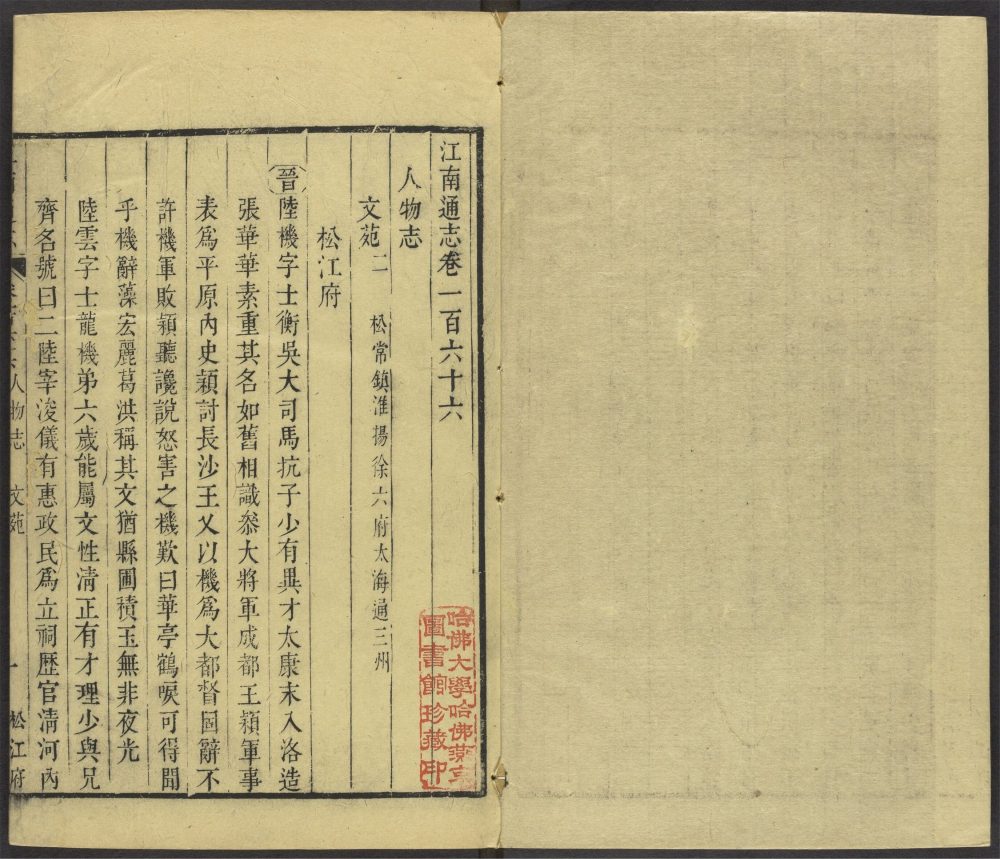 江南通志卷一百六十六
人物志
文苑二 松常鎮淮揚徐六府太海通三州
松江府
晉陸機字士衡吳大司馬抗子少有異才太康末入洛造
張華華素重其名如舊相識叅大將軍成都王穎軍事
表爲平原內史穎討長沙王乂以機爲大都督固辭不
許機軍敗穎聽讒說怒害之機歎曰華亭鶴唳可得聞
乎機辭藻宏麗葛洪稱其文猶縣圃積玉無非夜光
陸雲字士龍機弟六歲能屬文性清正有才理少與兄
齊名號曰二陸宰浚儀有惠政民爲立祠歷官清河內
人物志 文苑 一 松江府
哈佛大學哈佛燕京
圖書館珍藏印